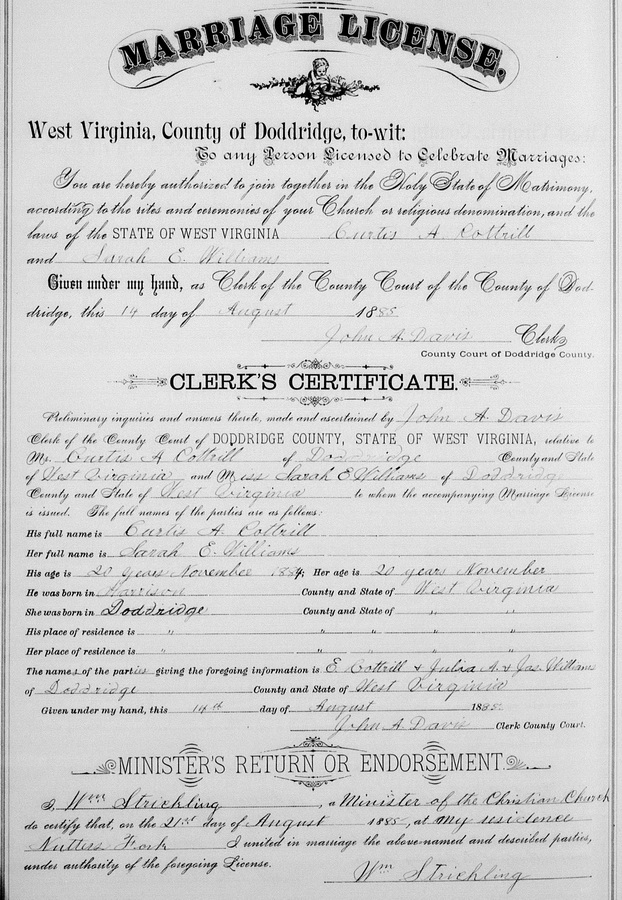 MARRIAGE LICENSE,
West Virginia, County of Doddridge, to-wit:
To any Person Licensed to Celebrate Marriages:
You are hereby authorized to join together in the Holy State of Matrimony,
according to the rites and ceremonies of your Church or religious denomination, and the
laws of the STATE OF WEST VIRGINIA Curtis A Cottrill
and Sarah E. Williams
Given under my hand, as Clerk of the County Court of the County of Dod-
dridge, this 14 day of August 1885
John A. Davis Clerk
County Court of Doddridge County.
CLERK'S CERTIFICATE.
Preliminary inquiries and answers thereto, made and ascertained by John A Davis
Clerk of the County Court of DODDRIDGE COUNTY, STATE OF WEST VIRGINIA, relative to
Mr. Curtis A Cottrill of Doddridge County and State
of West Virginia and Miss Sarah E Williams of Doddridg
County and State of West Virginia to whom the accompanying Marriage License
is issued. The full names of the parties are as follows:
His full name is Curtis A. Cottrill
Her full name is Sarah E. Williams
His age is 20 years November 1884; Her age is 20 years November
He was born in Harrison County and State of West Virginia
She was born in Doddridge County and State of " "
His place of residence is " " " " "
Her place of residence is " " " " "
The names of the parties giving the foregoing information is E. Cottrill & Julia A. & Jas. Williams
of Doddridge County and State of West Virginia
Given under my hand, this 14th day of August 1885
John A. Davis Clerk County Court.
MINISTER'S RETURN OR ENDORSEMENT.
I, Wm Strichling, a Minister of the Christian Church
do certify that, on the 21st day of August 1885, at my residence
Nutters Fork I united in marriage the above-named and described parties,
under authority of the foregoing License.
Wm Strichling